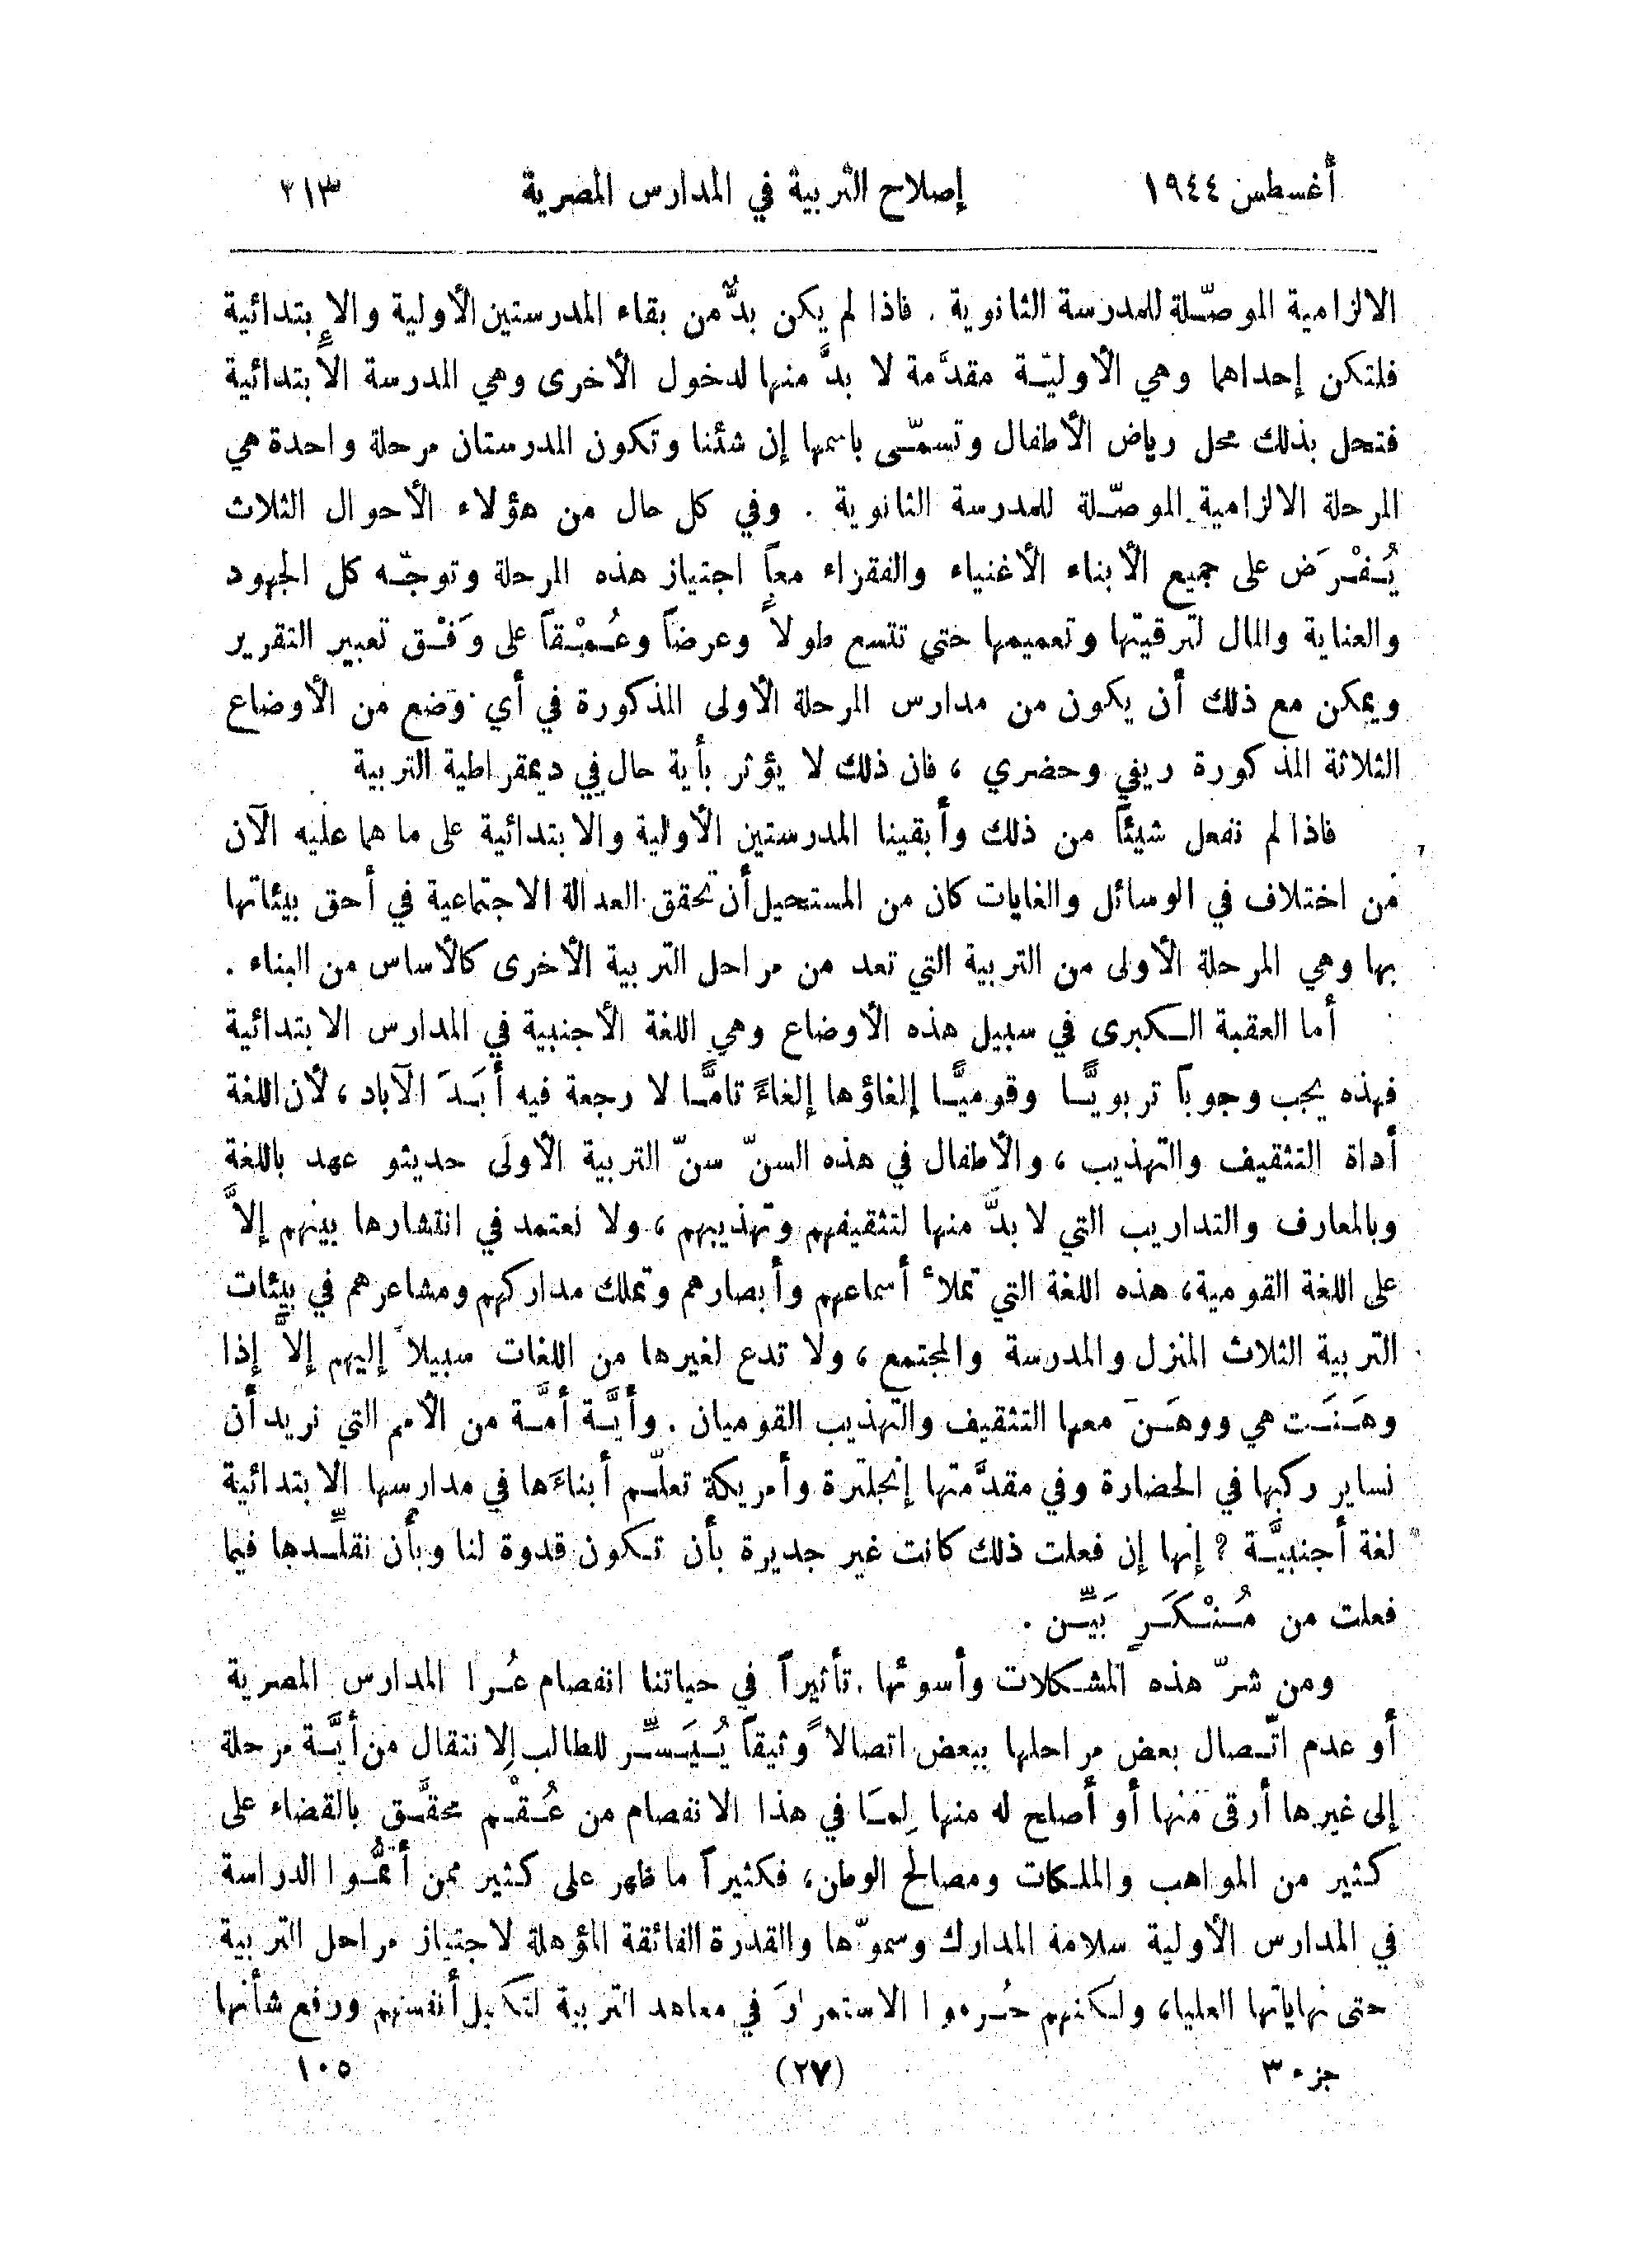 أغسطس ١٩٤٤ إصلاح التربية في المدارس المصرية ٢١٣
الالزامية الموصّلة للمدرسة الثانوية . فاذا لم يكن بدٌّ من بقاء المدرستين الأولية والإبتدائية
فلتكن إحداهما وهي الأوليّة مقدَّمة لا بدَّ منها لدخول الأخرى وهي المدرسة الابتدائية
فتحل بذلك محل رياض الأطفال وتسمّى باسمها إن شئنا وتكون المدرستان مرحلة واحدة هي
المرحلة الالزامية الموصّلة للمدرسة الثانوية . وفي كل حال من هؤلاء الأحوال الثلاث
يُفْرَض على جميع الأبناء الأغنياء والفقراء معاً اجتياز هذه المرحلة وتوجّه كل الجهود
والعناية والمال لترقيتها وتعميمها حتى تتسع طولاً وعرضاً وعُمْقاً على وَفْق تعبير التقرير
ويمكن مع ذلك أن يكون من مدارس المرحلة الأولى المذكورة في أي وضع من الأوضاع
الثلاثة المذكورة ريفي وحضري ، فان ذلك لا يؤثر بأية حال في ديمقراطية التربية
فاذا لم نفعل شيئاً من ذلك وأبقينا المدرستين الأولية والابتدائية على ما هما عليه الآن
من اختلاف في الوسائل والغايات كان من المستحيل أن تحقق العدالة الاجتماعية في أحق بيئاتها
بها وهي المرحلة الأولى من التربية التي تعد من مراحل التربية الأخرى كالأساس من البناء .
أما العقبة الكبرى في سبيل هذه الأوضاع وهي اللغة الأجنبية في المدارس الابتدائية
فهذه يجب وجوباً تربويًّا وقوميًّا إلغاؤها إلغاءً تامًّا لا رجعة فيه أَبَدَ الآباد ، لأن اللغة
أداة التثقيف والتهذيب ، والأطفال في هذه السنّ سنّ التربية الأولى حديثو عهد باللغة
وبالمعارف والتداريب التي لا بدَّ منها لتثقيفهم وتهذيبهم ، ولا نعتمد في انتشارها بينهم إلاَّ
على اللغة القومية ، هذه اللغة التي تملأ أسماعهم وأبصارهم وتملك مداركهم ومشاعرهم في بيئات
التربية الثلاث المنزل والمدرسة والمجتمع ، ولا تدع لغيرها من اللغات سبيلاً إليهم إلاَّ إذا
وهَنَت هي ووهَنَ معها التثقيف والتهذيب القوميان . وأيَّة أمَّة من الأمم التي نريد أن
نساير ركبها في الحضارة وفي مقدَّمتها إنجلترة وأمريكة تعلّم أبناءَها في مدارسها الابتدائية
لغة أجنبيَّة ? إنها إن فعلت ذلك كانت غير جديرة بأن تكون قدوة لنا وبأن نقلِّدها فيما
فعلت من مُنْكَرٍ بَيِّن .
ومن شرّ هذه المشكلات وأسوئها تأثيراً في حياتنا انفصام عُرا المدارس المصرية
أو عدم اتّصال بعض مراحلها ببعض اتصالاً وثيقاً يُيَسِّر للطالب الانتقال من أيَّة مرحلة
إلى غيرها أرقى منها أو أصلح له منها لِمَا في هذا الانفصام من عُقْم محقَّق بالقضاء على
كثير من المواهب والملكات ومصالح الوطن ، فكثيراً ما ظهر على كثير ممن أتمُّوا الدراسة
في المدارس الأولية سلامة المدارك وسموّها والقدرة الفائقة المؤهلة لاجتياز مراحل التربية
حتى نهاياتها العليا ، ولكنهم حُرموا الاستمرارَ في معاهد التربية لتكميل أنفسهم ورفع شأنها
جزء ٣ (٢٧) ١٠٥